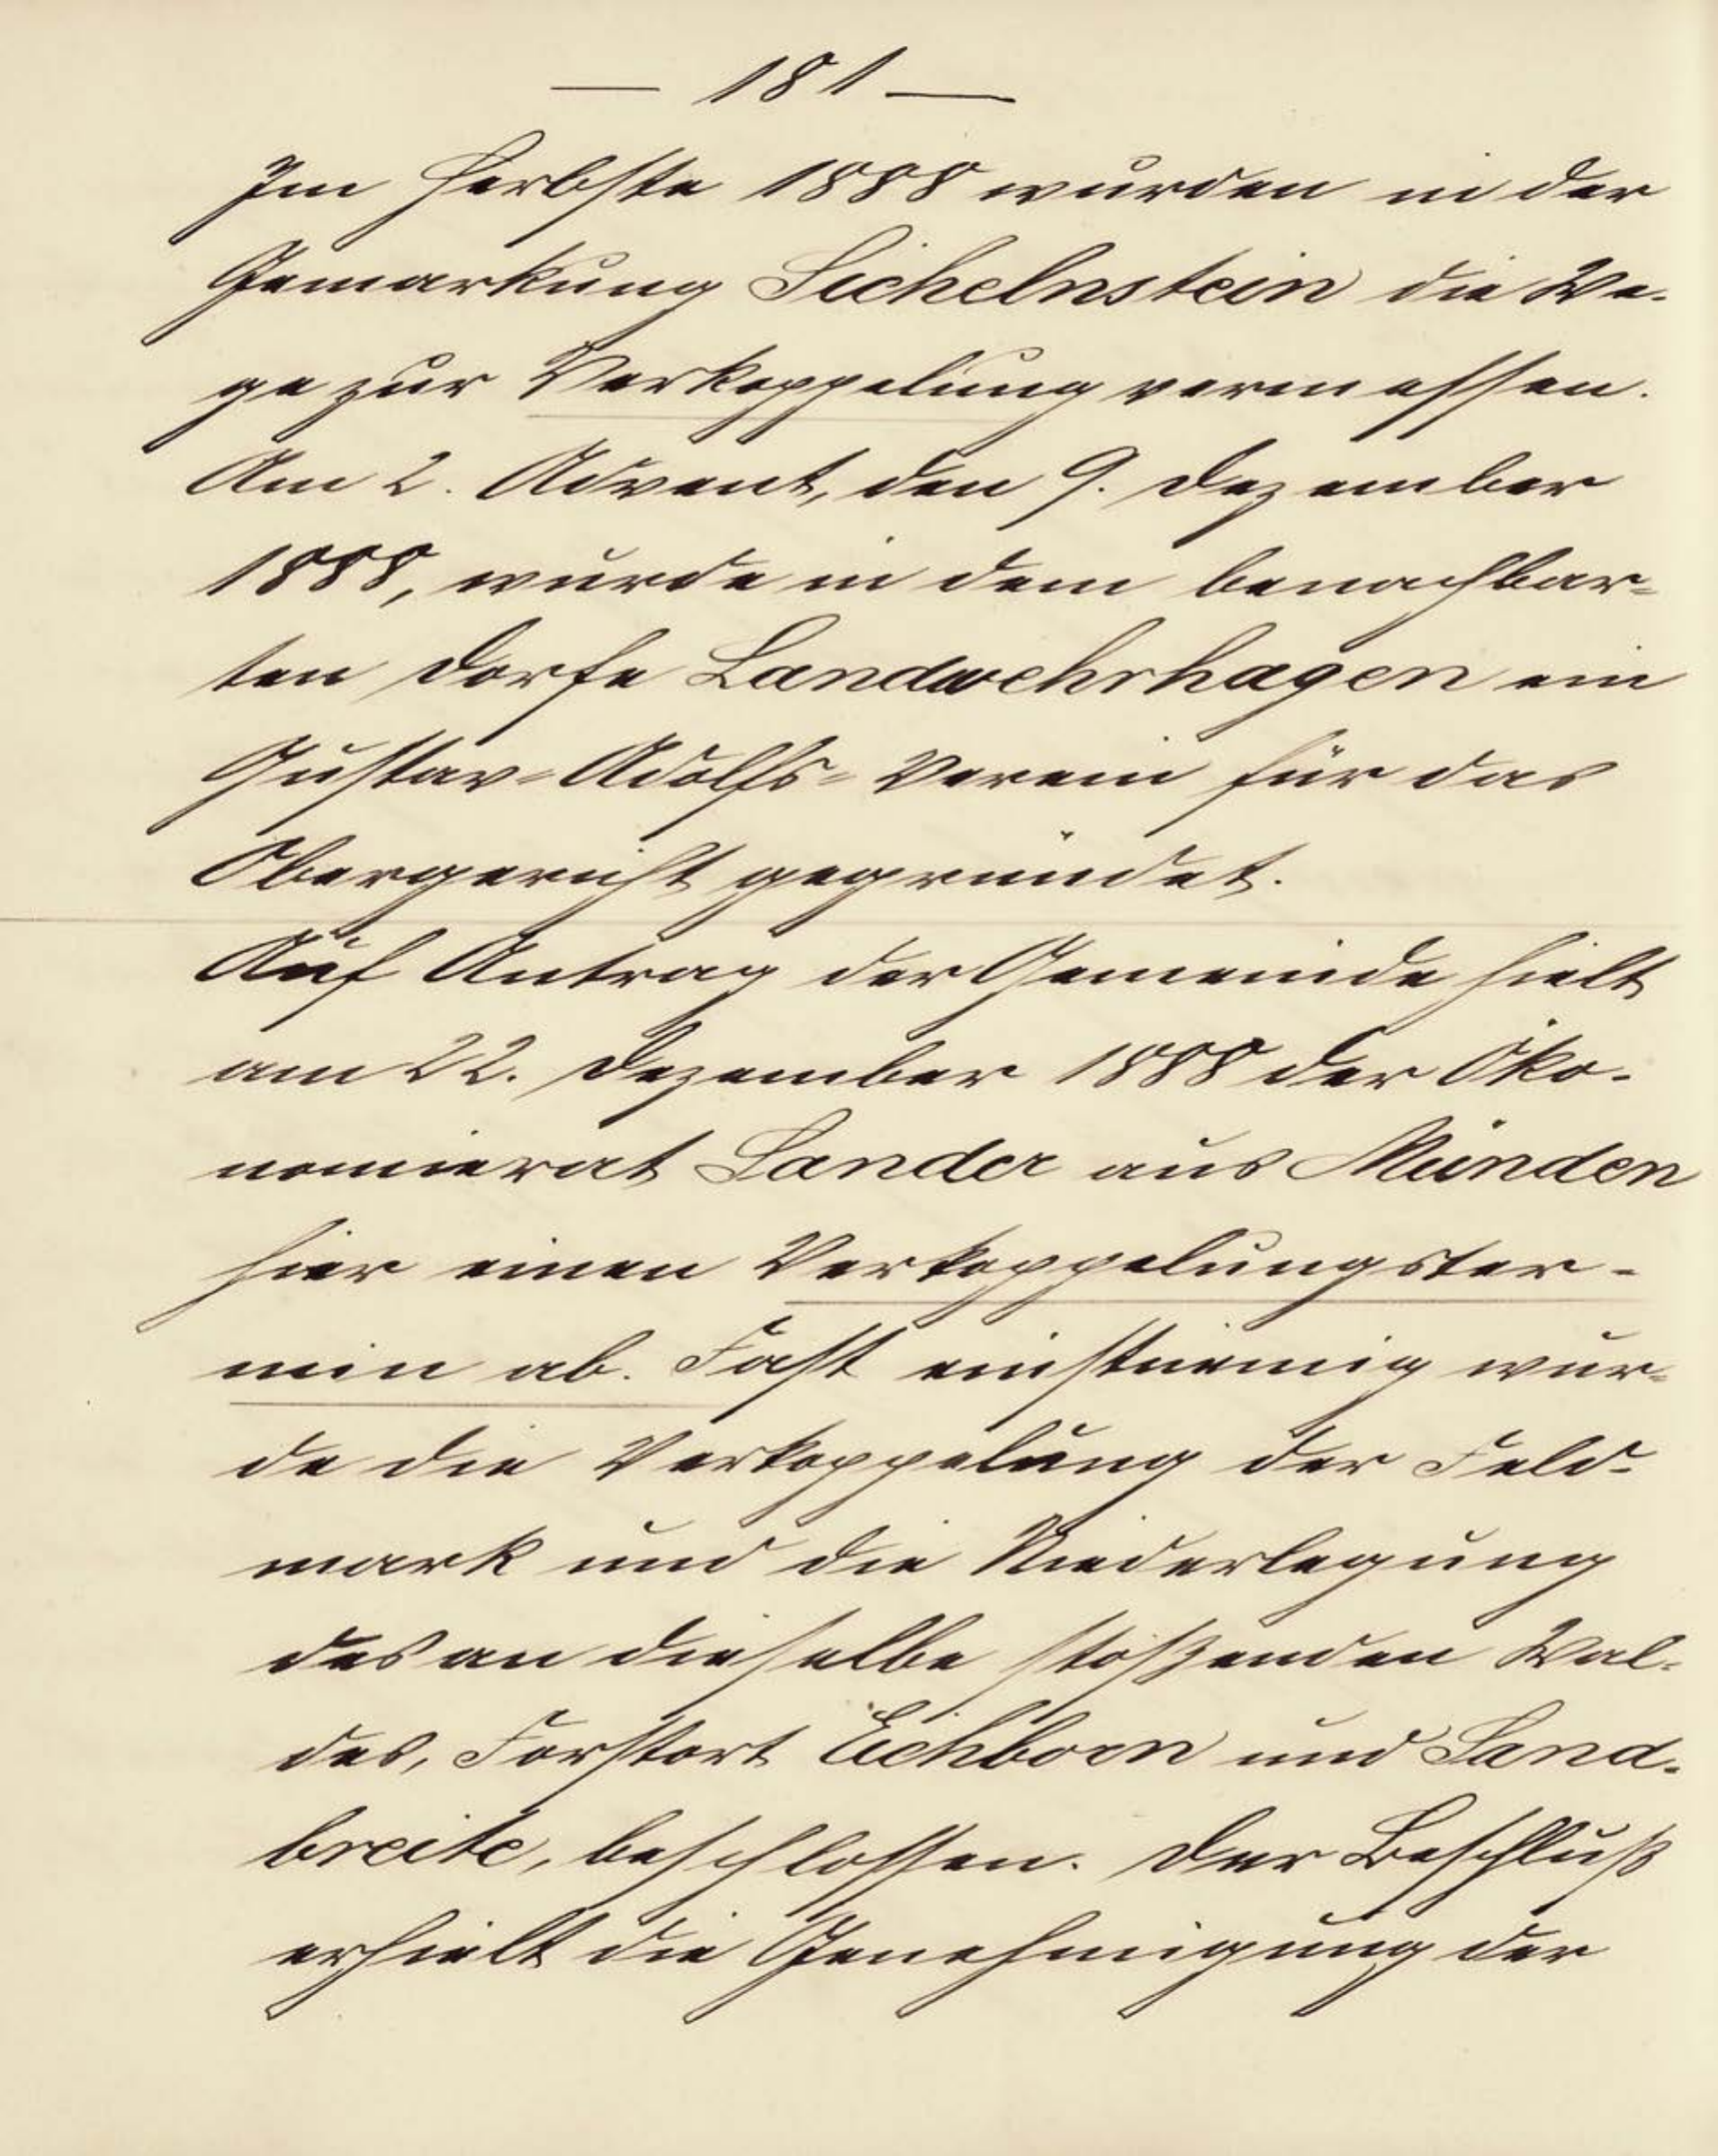 — 181 —
Im Herbste 1888 wurden in der
Gemarkung Sichelnstein die We-
ge zur Verkoppelung vermessen.
Am 2. Advent, den 9. Dezember
1888, wurde in dem benachbar-
ten Dorfe Landwehrhagen ein
Gustav-Adolfs-Verein für das
Obergericht gegründet.
Auf Antrag der Gemeinde hielt
am 22. Dezember 1888 der Öko-
nomierat Sander aus Münden
hier einen Verkoppelungster-
min ab. Fast einstimmig wur-
de die Verkoppelung der Feld-
mark und die Niederlegung
des an dieselbe stoßenden Wal-
des, Forstort Eichborn und Sand-
breite, beschlossen. Der Beschluß
erhielt die Genehmigung der